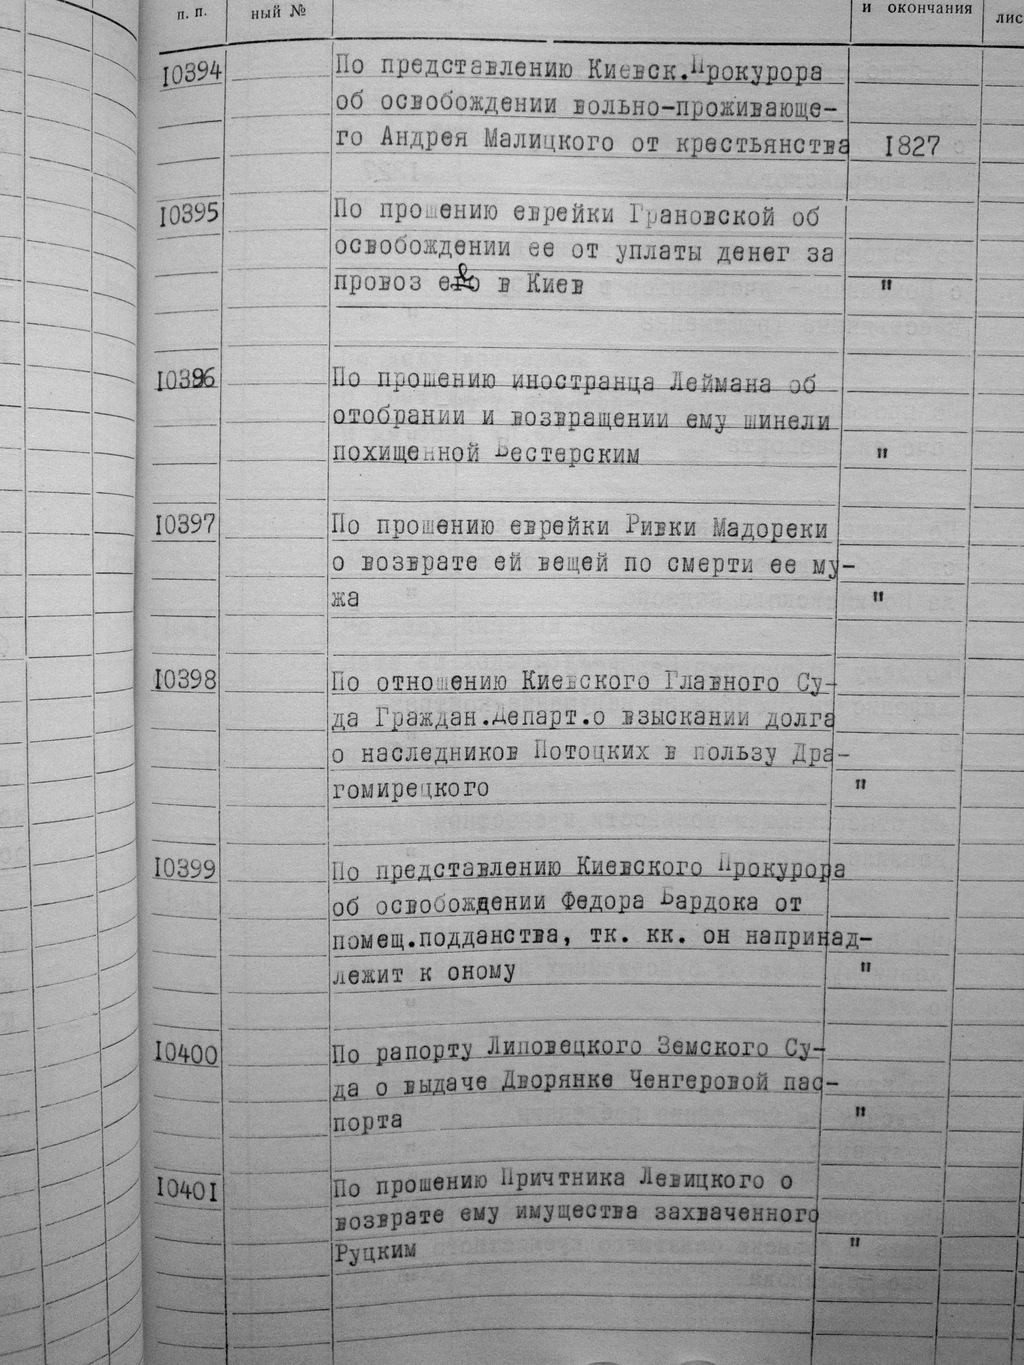 п. п.
ный №
и окончания
лис
10394
По представлению Киевск.Прокурора
об освобождении вольно-проживающе-
го Андрея Малицкого от крестьянства 1827
10395
По прошению еврейки Грановской об
освобождении ее от уплаты денег за
провоз ее в Киев "
10396
По прошению иностранца Леймана об
отобрании и возвращении ему шинели
похищенной Вестерским "
10397
По прошению еврейки Ривки Мадореки
о возврате ей вещей по смерти ее му-
жа "
10398
По отношению Киевского Главного Су-
да Граждан.Департ.о взыскании долга
о наследников Потоцких в пользу Дра-
гомирецкого "
10399
По представлению Киевского Прокурора
об освобождении Федора Бардока от
помещ.подданства, тк. кк. он напринад-
лежит к оному "
10400
По рапорту Липовецкого Земского Су-
да о выдаче Дворянке Ченгеровой пас-
порта "
10401
По прошению Причтника Левицкого о
возврате ему имущества захваченного
Руцким "